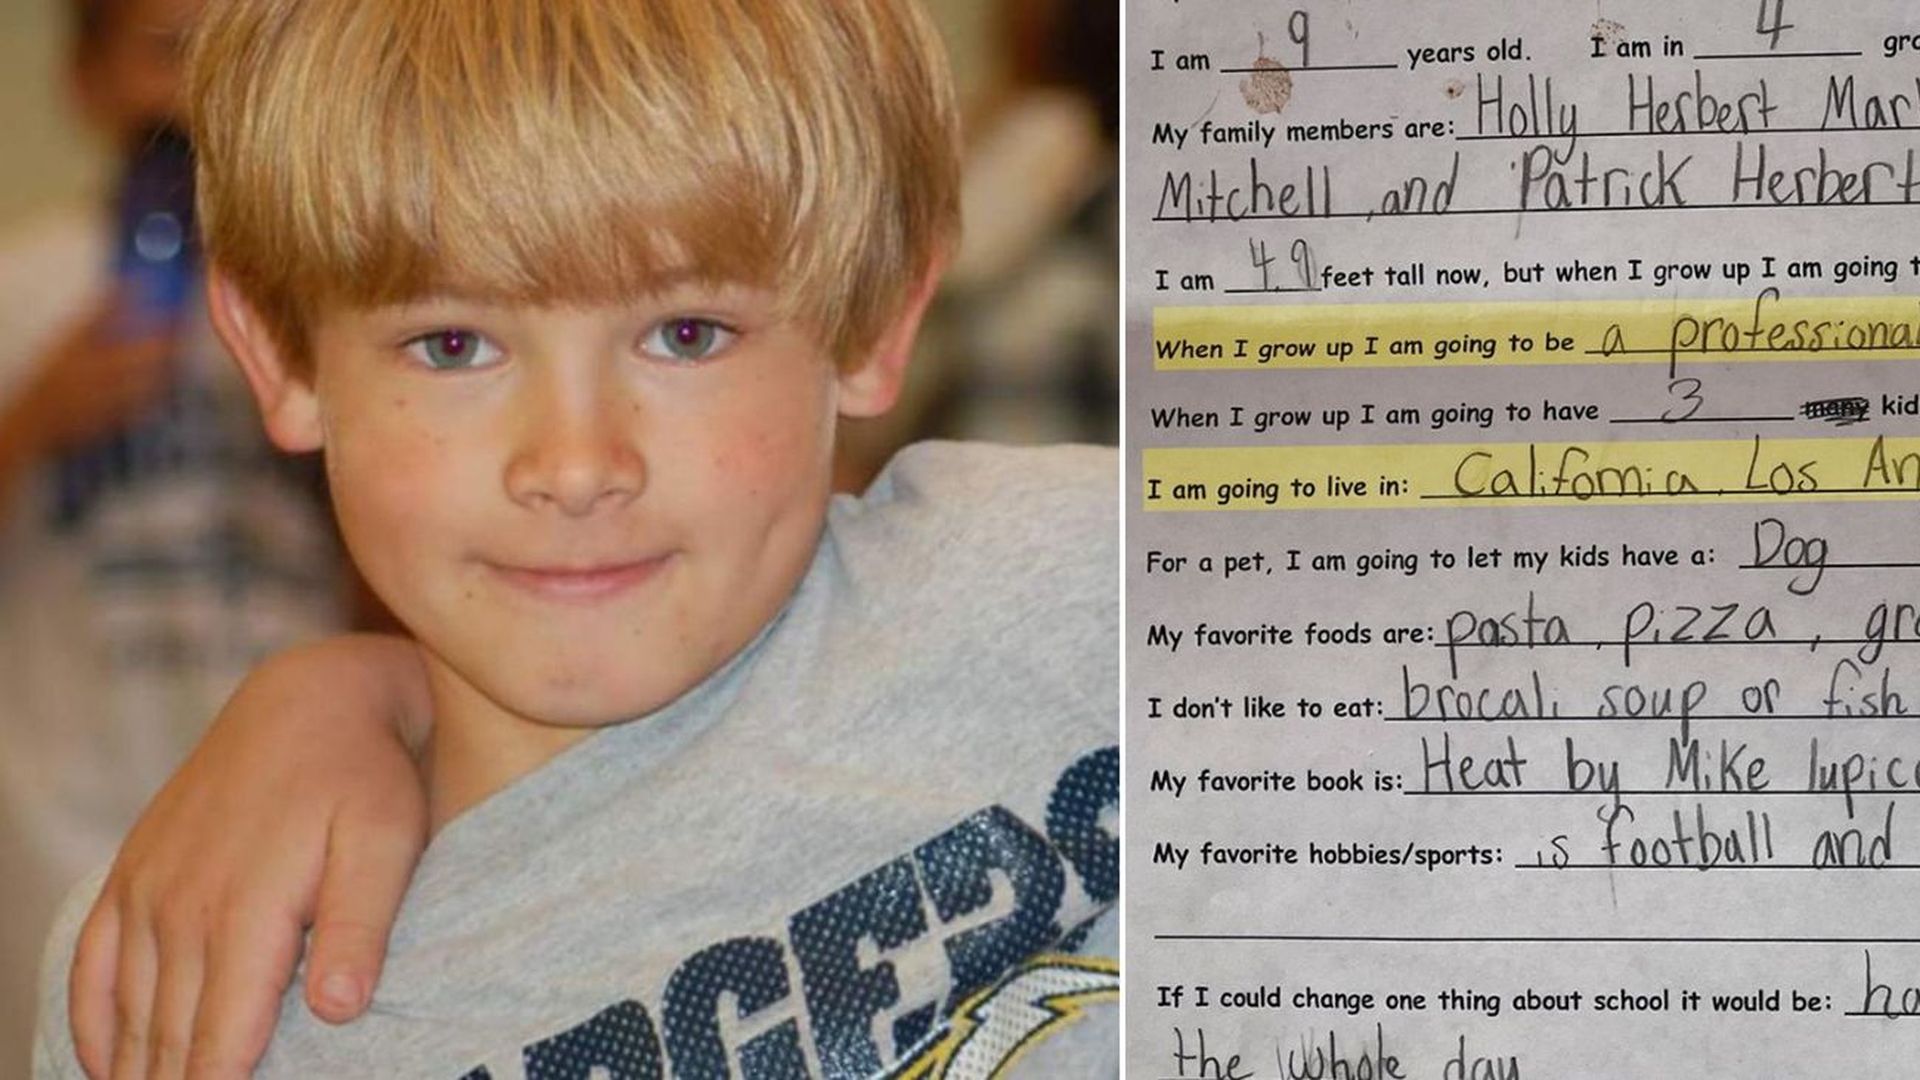 CHARGERS
I am 9 years old. I am in 4
My family members are: Holly Herbert
Mitchell, and Patrick Herbert
I am 4,9 feet tall now, but when I grow up I am going
When I grow up I am going to be a professional
When I grow up I am going to have 3 many
I am going to live in: California, Los
For a pet, I am going to let my kids have a: Dog
My favorite foods are: pasta, pizza,
I don't like to eat: brocali soup or fish
My favorite book is: Heat by Mike
My favorite hobbies/sports: is football and
If I could change one thing about school it would be:
the whole day